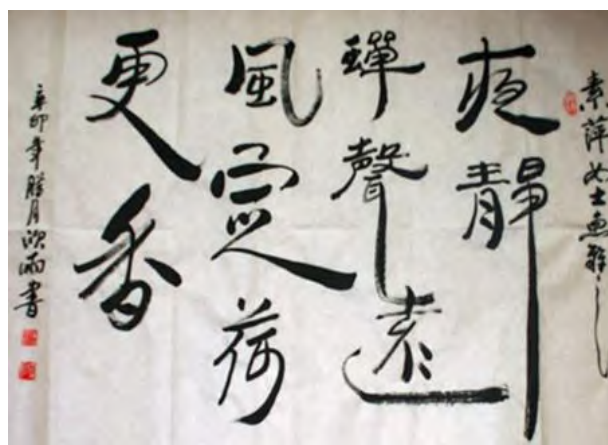 素萍女士惠
夜靜
蟬聲遠
風定荷
更香
辛卯年腊月欣雨書